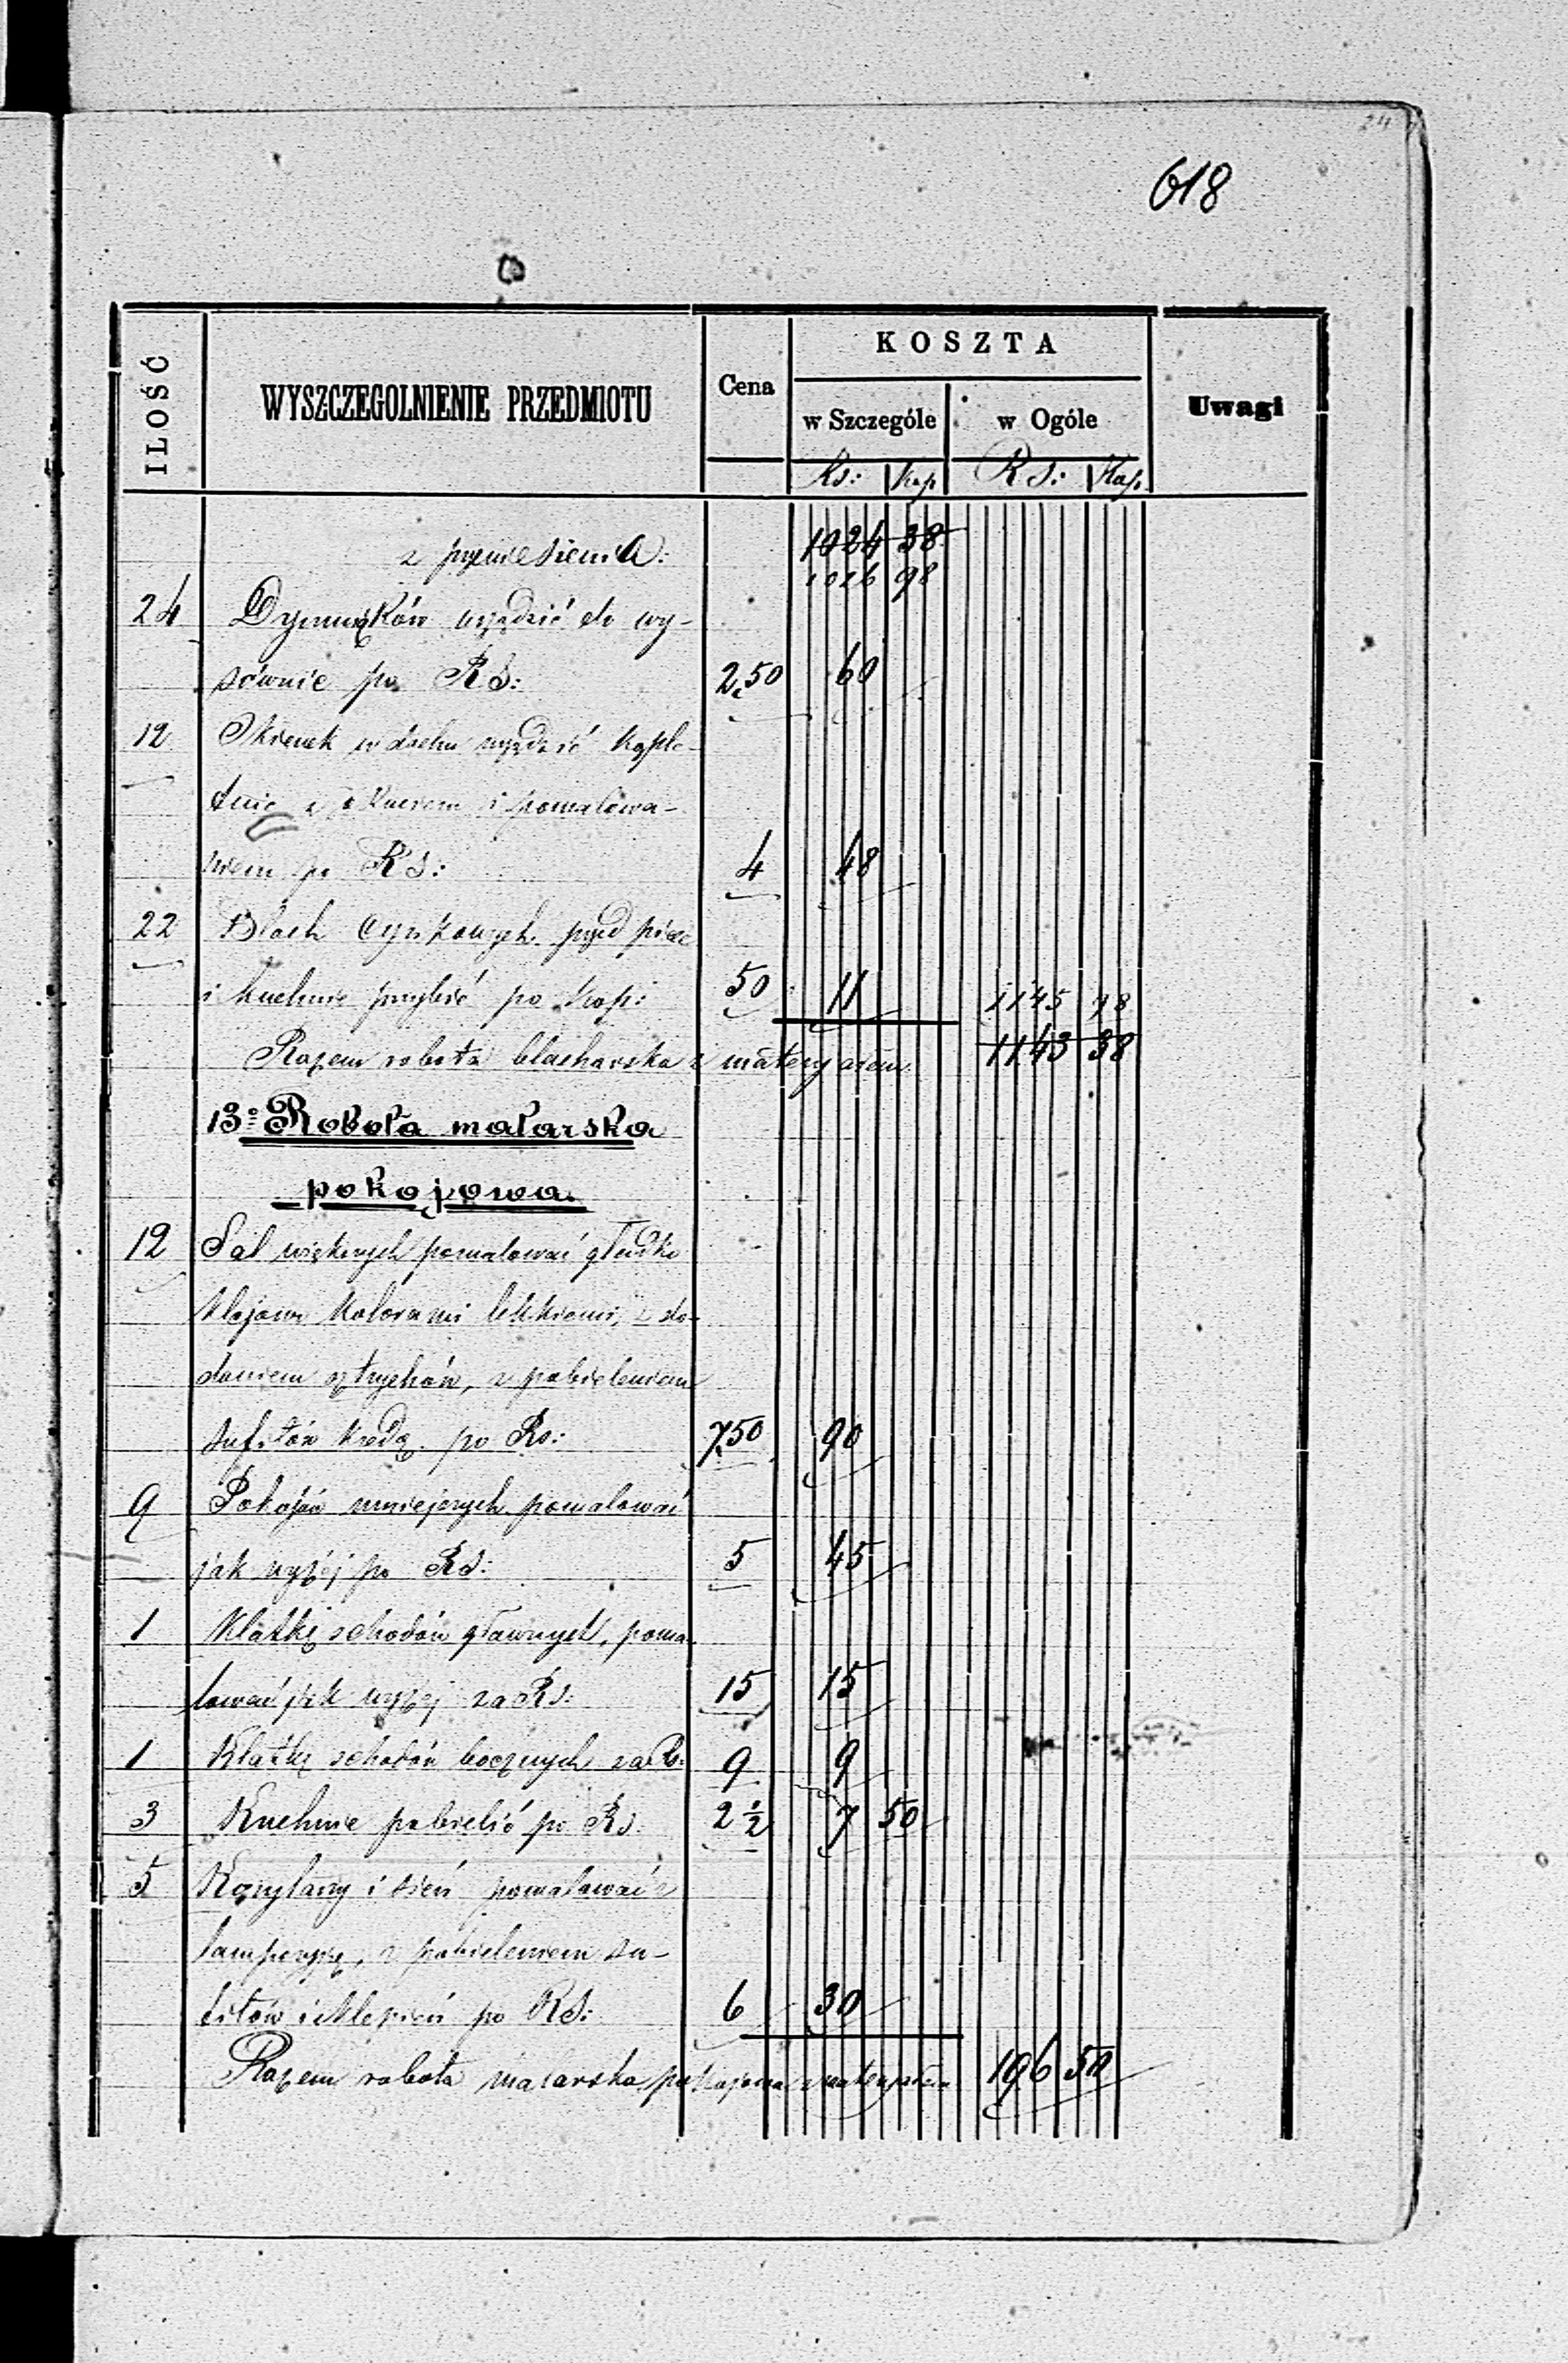 24
618
KOSZTA
ILOŚĆ WYSZCZEGOLNIENIE PRZEDMIOTU Cena w Szczególe w Ogóle Uwagi
Rs: Kop Rs: Kop.
z przeniesienia: 1024 38
1026 98
24 Dymników urządzić do wy-
sównic po RS: 2,50 60
12 Okienek w dachu urządzić kąple-
tnie z okuciem i pomalowa-
niem po RS: 4 48
22 Blach cynkowych przed piece
i kuchnie przybić po kop: 50 11 1145 98
Razem robota blacharska z materyałem 1143 38
13º Robota malarska
pokojowa.
12 Sal większych pomalować gładko
klejowo kolorami lekkiemi, z do-
daniem sztrychów, z pobieleniem
sufitów kredą po Rs: 7,50 90
9 Pokojów mniejszych pomalować
jak wyżej po RS: 5 45
1 Klatkę schodów głównych, poma-
lować jak wyżej za RS: 15 15
1 Klatkę schodów bocznych za Rs: 9 9
3 Kuchnie pobielić po RS. 2 1/2 7 50
5 Korytarzy i sień pomalować z
lamperyą, z pobieleniem su-
fitów i sklepień po RS: 6 30
Razem robota malarska pokojowa z materyałem 196 50